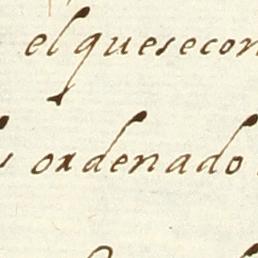 el quesecon
ordenado